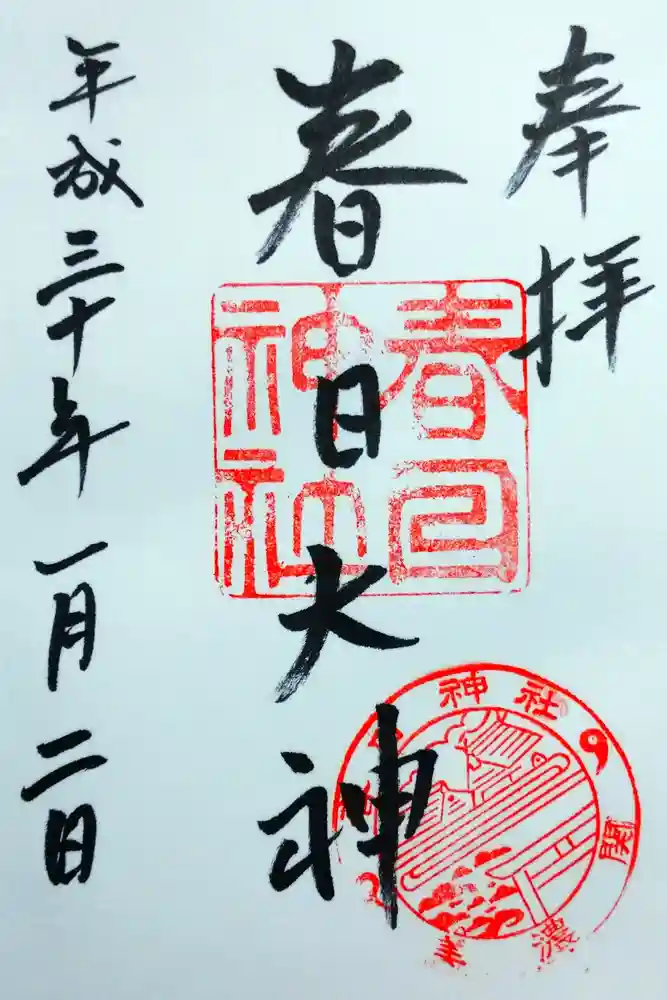 奉拝
春日大神
春日
神社
平成三十年一月二日
神社
美濃
関